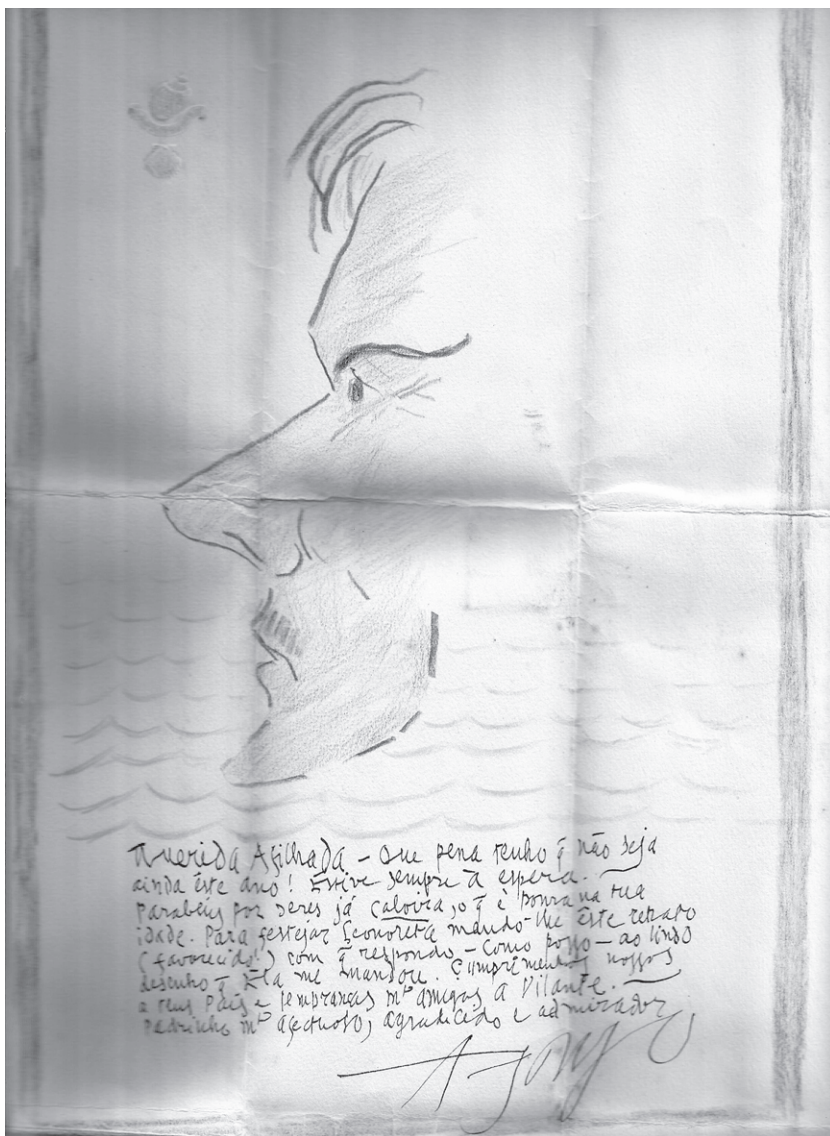 Querida Afilhada – Que pena tenho q̃ não seja
ainda êste ano! Estive sempre à espera. –
Parabéns por seres já caloira, o q̃ é honra na tua
idade. Para festejar Leonoreta mando-lhe êste retrato
(favorecido!) com q̃ respondo – como posso – ao lindo
desenho q̃ Ela me mandou. Cumprimentos nossos
a teus Pais e lembranças mto amigas a Vilante. –
Padrinho mto afectuoso, agradecido e admirador